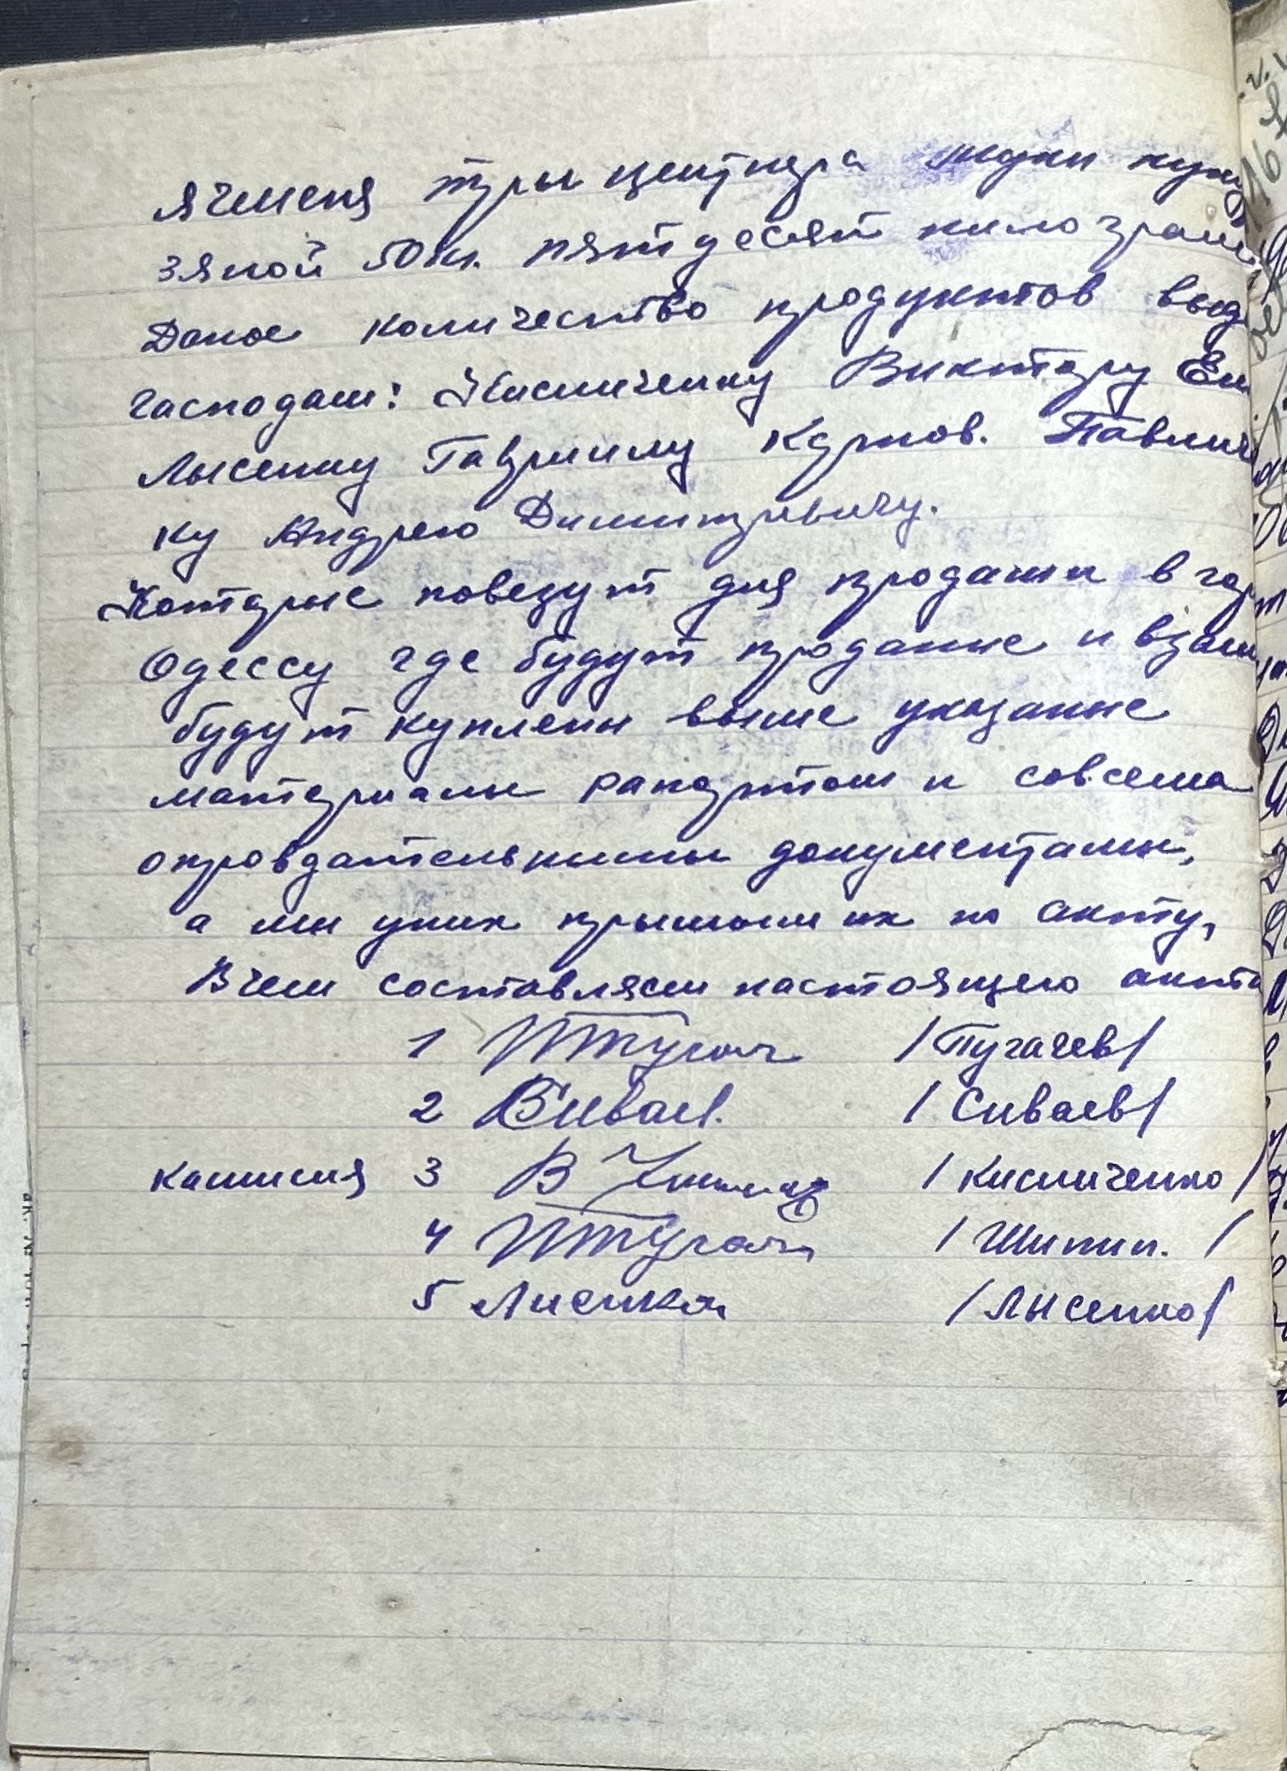 Ячменя тры центнера муки куку
зяной 50 кг. пятдесят килограм
Даное количество продуктов выд
гасподам: Кисличенку Виктару Ем
Лысенку Гавриилу Карпов. Павлич
ку Андрею Димитривичу.
Которые повезут для продажи в гор
Одессу где будут проданые и взам
будут куплены выше указаные
материалы рапортом и совсема
опровдательними документами,
а ми уних прымем их по акту,
В чем составляем настоящего акта
1 /Пугачев/
2 Сиваев. /Сиваев/
камисия 3 /Кисличенко/
4 /Шипип./
5 Лисенко /Лысенко/